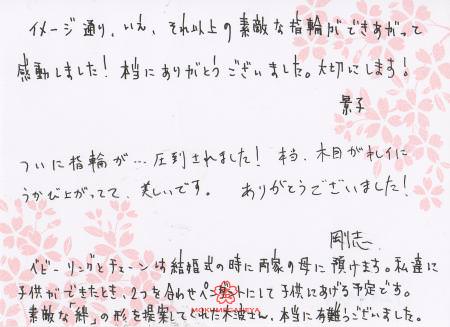 イメージ通り、いえ、それ以上の素敵な指輪ができあがって
感動しました！本当にありがとうございました。大切にします！
景子
ついに指輪が…圧到されました！本当、木目がキレイに
うかび上がってて、美しいです。ありがとうございました！
剛志
ベビーリングとチェーンは結婚式の時に両家の母に預けます。私達に
子供ができたとき、2つを合わせペンダントにして子供にあげる予定です。
素敵な「絆」の形を提案してくれた木渡さん、本当に有難うございました。